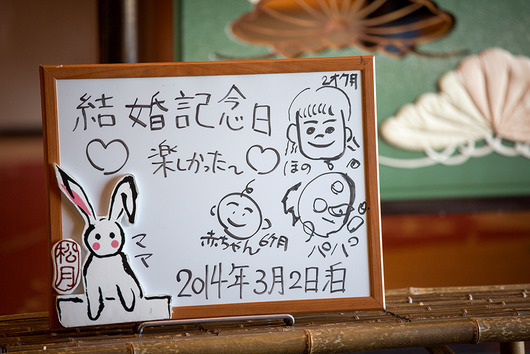 2才ケ月
結婚記念日
♡楽しかった~♡
ほの
ママ
赤ちゃん6ケ月
パパ
松月
2014年3月2日泊